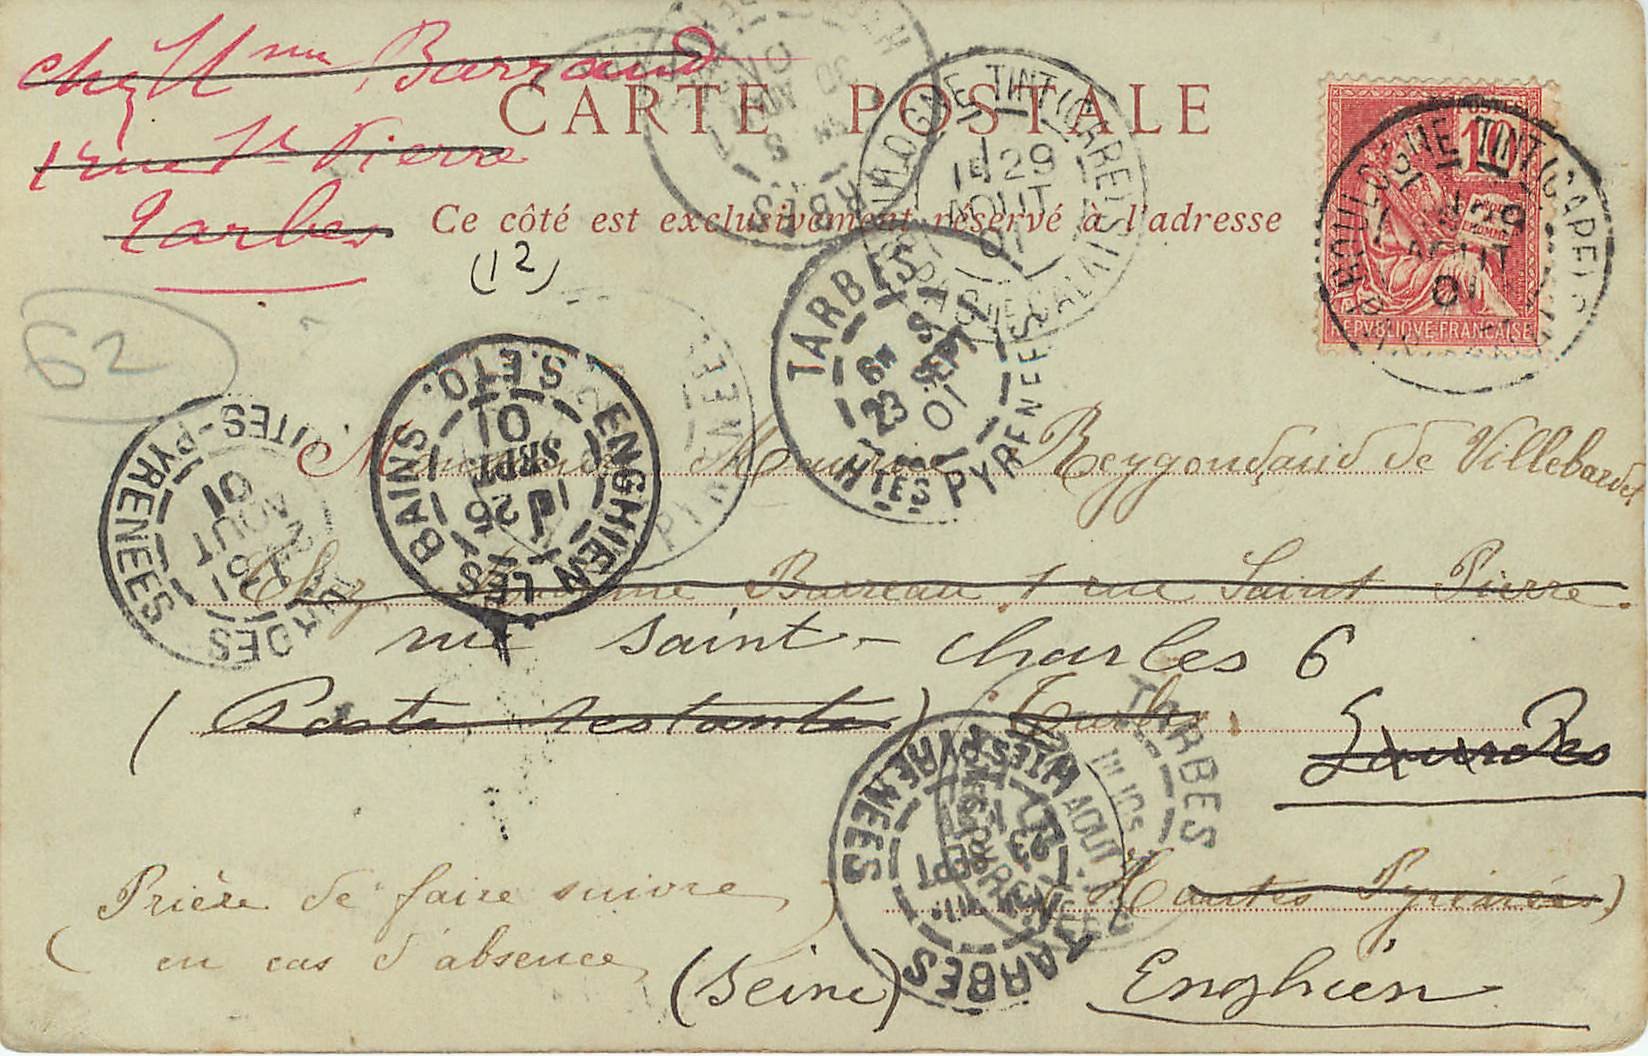 chez Mme Barraud
1 rue St Pierre
Tarbes
CARTE POSTALE
Ce côté est exclusivement réservé à l'adresse
(12)
62
BOULOGNE TINTELLERIES
29
AOUT
01
PAS DE CALAIS
10
POSTES
REPUBLIQUE FRANÇAISE
BOULOGNE
29
AOUT
01
TARBES
30
AOUT
01
TARBES
6M
23
SEPT
01
HTES PYRENEES
ENGHIEN LES BAINS
S.ETO.
25
SEPT
01
LOURDES
31
AOUT
01
HTES-PYRENEES
Maurice Reygondaud de Villebardet
Chez Madame Barreau 1 rue Saint Pierre.
rue Saint-Charles 6
(Poste restante) (Tarbes
Lourdes
TARBES
AOUT
TARBES
23
SEPT
01
HTES PYRENEES
Hautes Pyrénées)
Prière de faire suivre
en cas d'absence
(Seine)
Enghien